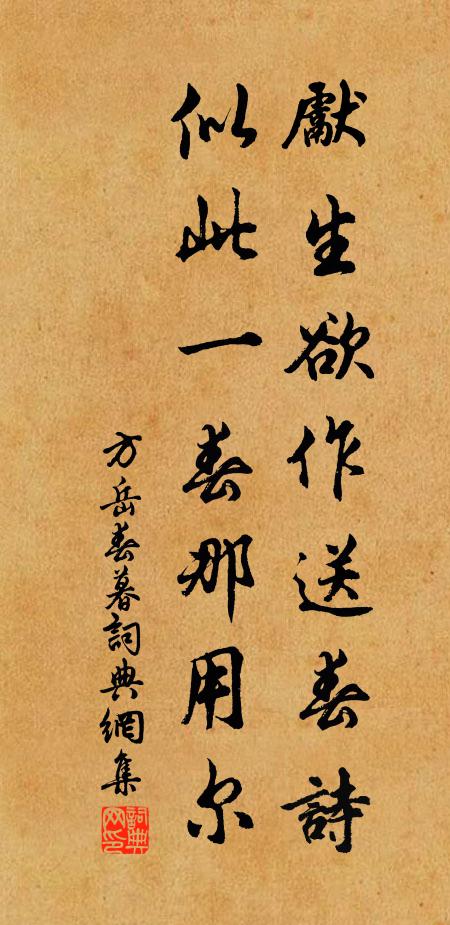 獻生欲作送春詩
似此一春那用尔
方岳春暮詞典網集
詞典网印